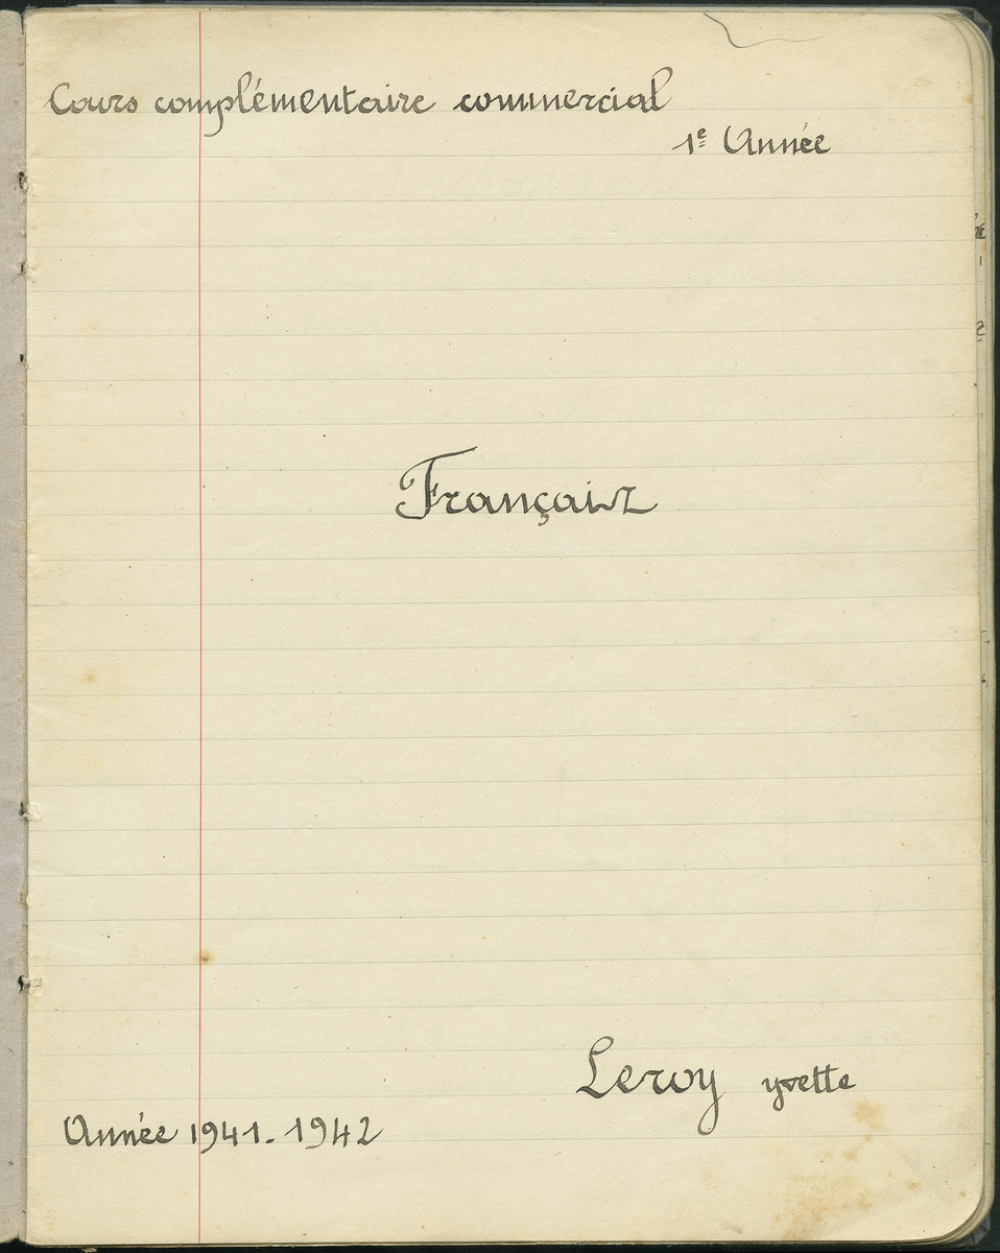 Cours complémentaire commercial
1e Année
Français
Leroy yvette
Année 1941-1942